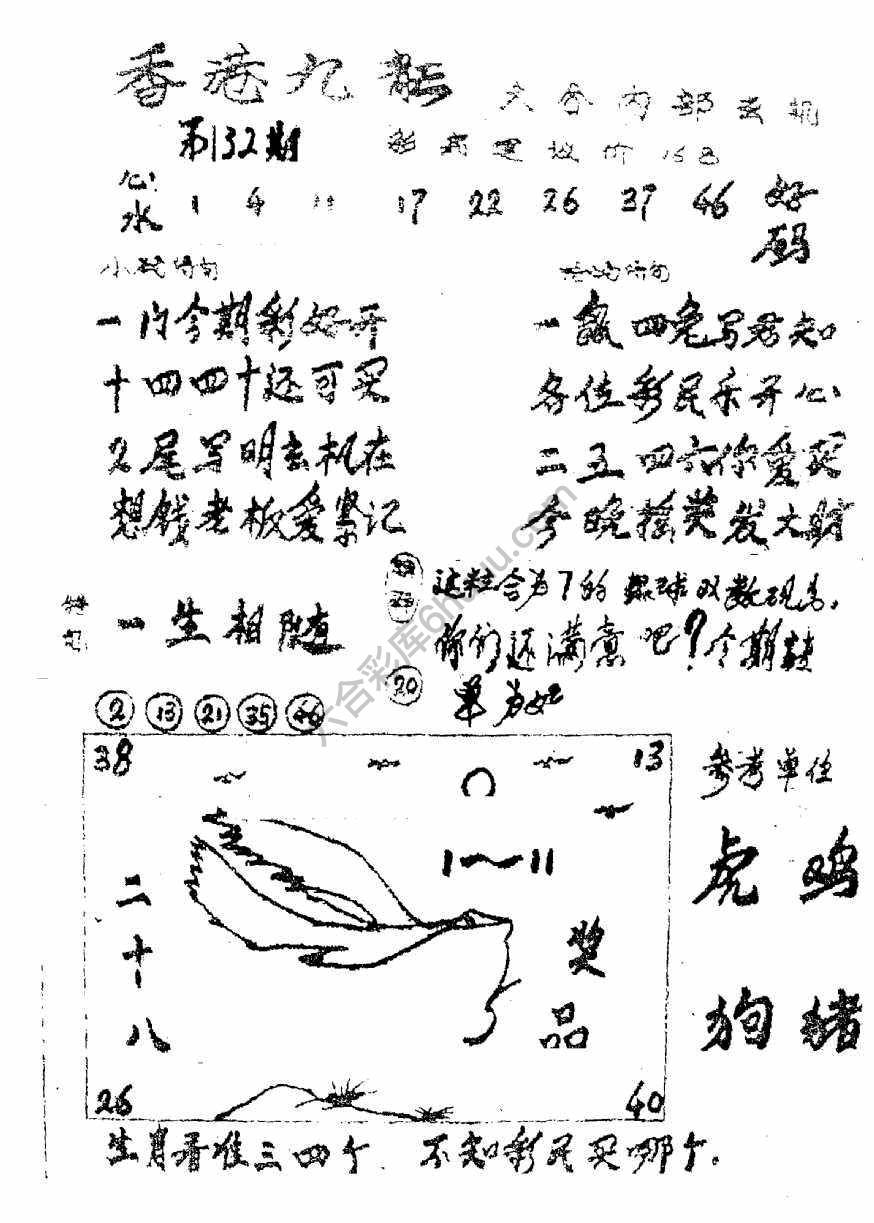 香港九龍
六合内部玄机
第132期
彩 价168
心水 1 4 11 17 22 26 37 46 好码
一内今期彩好开
十四四十还可买
2尾写明玄机在
想钱老板爱紧记
一 四兔写君知
各位彩民乐开心
二五四六你爱买
今晚 奖发大财
一生相随
这粒合为7的 球双数码为,
你们还满意吧?今期 
单为好
20
2 13 21 35 46
38 13
1～11
二十八
奖品
26 40
参考单位
虎 鸡
狗 猪
生肖看准三四个 不知彩民买哪个.
六合彩库6hcyu.com